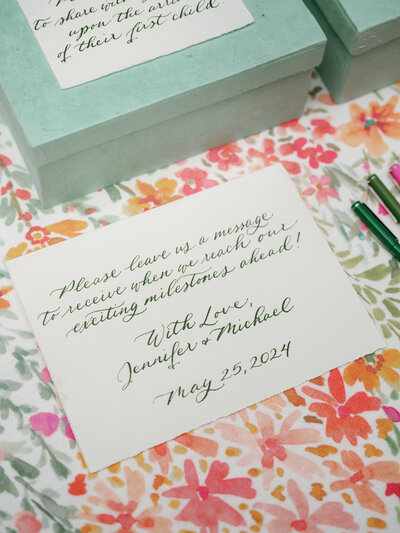 to share with
upon the arri
of their first child
Please leave us a message
to receive when we reach our
exciting milestones ahead!
With Love,
Jennifer & Michael
May 25, 2024